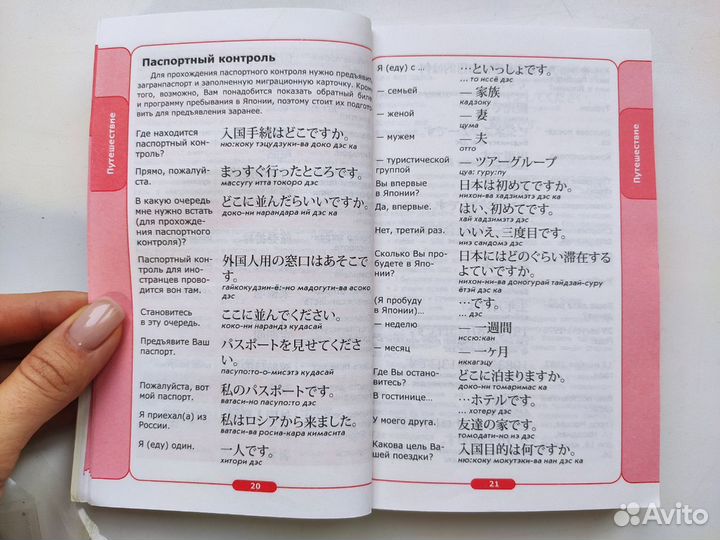 Паспортный контроль
Для прохождения паспортного контроля нужно предъявить
загранпаспорт и заполненную миграционную карточку. Кроме
того, возможно, Вам понадобится показать обратный билет
и программу пребывания в Японии, поэтому стоит их подгото-
вить для предъявления заранее.
Где находится
паспортный кон-
троль?
入国手続はどこですか。
ню:коку тэцудзуки-ва доко дэс ка
Прямо, пожалуй-
ста.
まっすぐ行ったところです。
массугу итта токоро дэс
В какую очередь
мне нужно встать
(для прохожде-
ния паспортного
контроля)?
どこに並んだらいいですか。
доко-ни нарандара ий дэс ка
Паспортный кон-
троль для ино-
странцев прово-
дится вон там.
外国人用の窓口はあそこで
す。
гайкокудзин-ё:-но мадогути-ва асоко
дэс
Становитесь
в эту очередь.
ここに並んでください。
коко-ни нарандэ кудасай
Предъявите Ваш
паспорт.
パスポートを見せてくださ
い。
пасупо:то-о-мисэтэ кудасай
Пожалуйста, вот
мой паспорт.
私のパスポートです。
ватаси-но пасупо:то дэс
Я приехал(а) из
России.
私はロシアから来ました。
ватаси-ва росиа-кара кимасита
Я (еду) один.
一人です。
хитори дэс
20
Путешествие
Я (еду) с ...
…といっしょです。
... то иссё дэс
— семьей
— 家族
кадзоку
— женой
— 妻
цума
— мужем
— 夫
отто
— туристической
группой
— ツアーグループ
цуа: гуру:пу
Вы впервые
в Японии?
日本は初めてですか。
нихон-ва хадзимэтэ дэс ка
Да, впервые.
はい、初めてです。
хай хадзимэтэ дэс
Нет, третий раз.
いいえ、三度目です。
ииэ сандомэ дэс
Сколько Вы про-
будете в Япо-
нии?
日本にはどのぐらい滞在する
よていですか。
нихон-ни-ва доногурай тайдзай-суру
ётэй дэс ка
(Я пробуду
в Японии)...
…です。
... дэс
— неделю
— 一週間
иссю:кан
— месяц
— 一ヶ月
иккагэцу
Где Вы остано-
витесь?
どこに泊まりますか。
доко-ни томаримас ка
В гостинице...
…ホテルです。
... хотеру дэс
У моего друга.
友達の家です。
томодати-но иэ дэс
Какова цель Ва-
шей поездки?
入国目的は何ですか。
ню:коку мокутэки-ва нан дэс ка
21
Путешествие
Avito